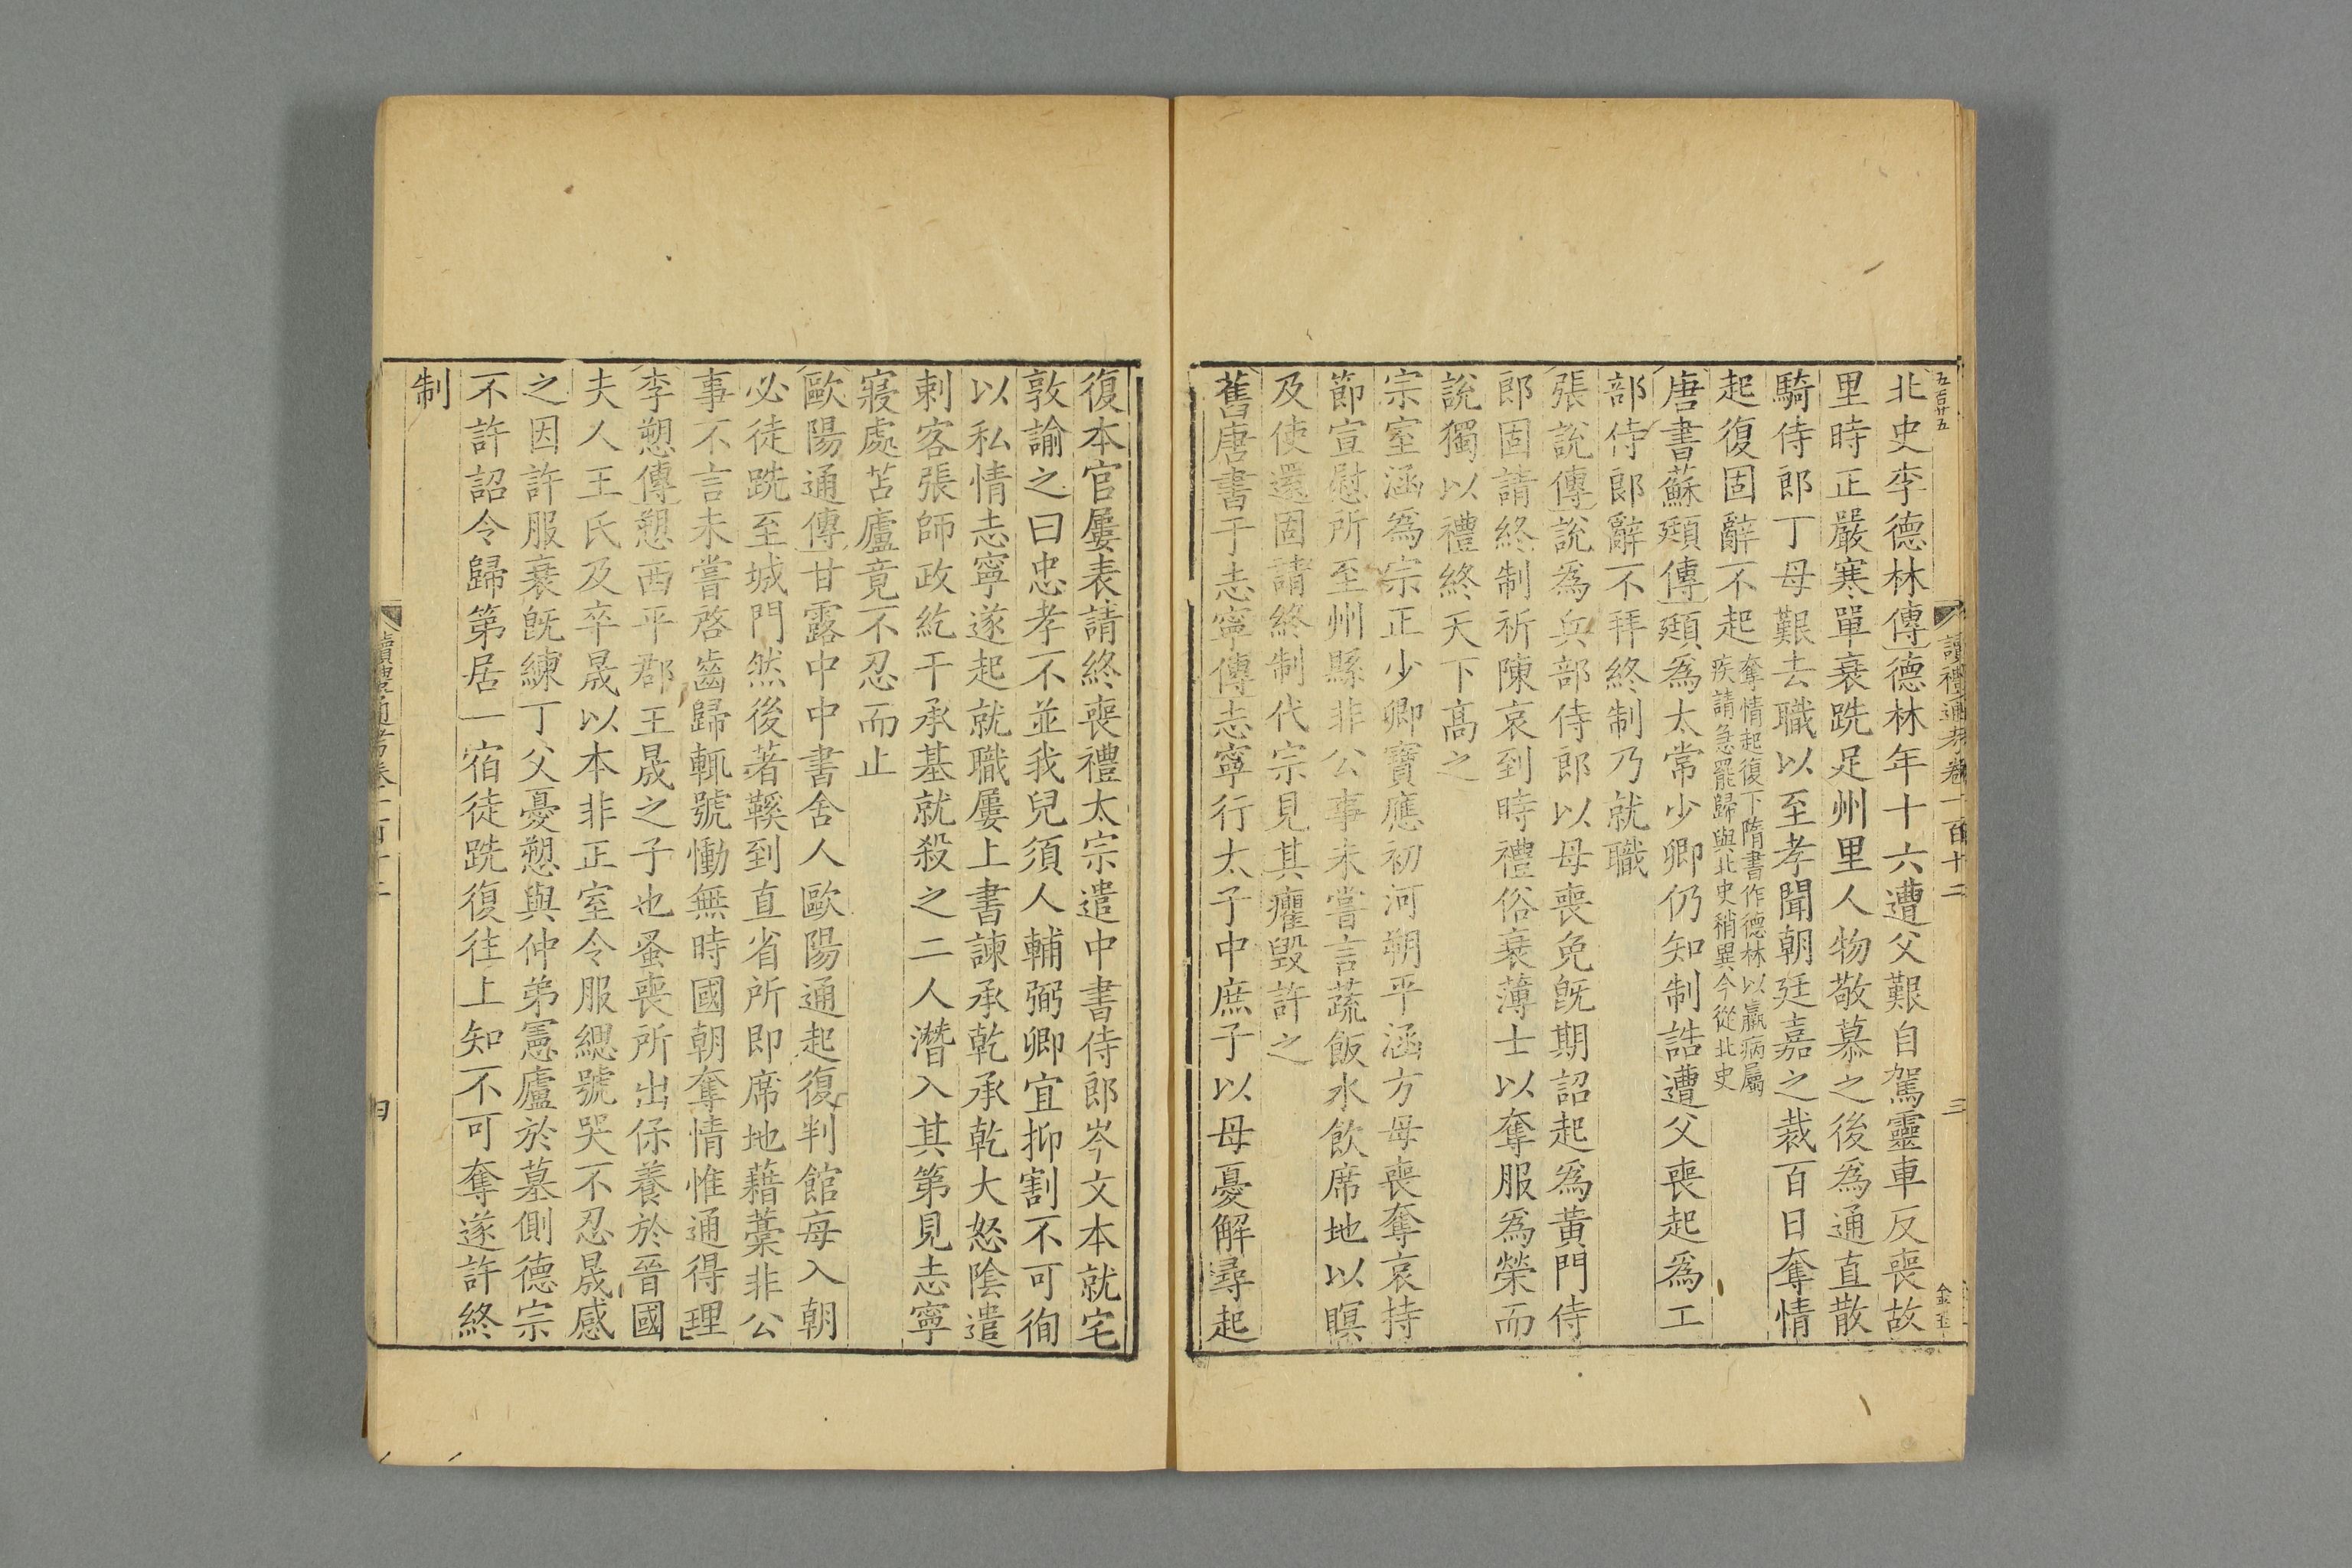 五百廿五
讀禮通考卷一百十二
三
北史李德林傳德林年十六遭父艱自駕靈車反喪故
里時正嚴寒單衰跣足州里人物敬慕之後爲通直散
騎侍郎丁母艱去職以至孝聞朝廷嘉之裁百日奪情
起復固辭不起奪情起復下隋書作德林以羸病屬
疾請急罷歸與北史稍異今從北史
唐書蘇頲傳頲爲太常少卿仍知制誥遭父喪起爲工
部侍郎辭不拜終制乃就職
張說傳說爲兵部侍郎以母喪免旣期詔起爲黃門侍
郎固請終制祈陳哀到時禮俗衰薄士以奪服爲榮而
說獨以禮終天下高之
宗室涵爲宗正少卿寶應初河朔平涵方母喪奪哀持
節宣慰所至州縣非公事未嘗言蔬飯水飮席地以瞑
及使還固請終制代宗見其癯毀許之
舊唐書于志寧傳志寧行太子中庶子以母憂解尋起
復本官屢表請終喪禮太宗遣中書侍郎岑文本就宅
敦諭之曰忠孝不並我兒須人輔弼卿宜抑割不可徇
以私情志寧遂起就職屢上書諫承乾承乾大怒陰遣
刺客張師政紇干承基就殺之二人潛入其第見志寧
寢處苫廬竟不忍而止
歐陽通傳甘露中中書舍人歐陽通起復判館每入朝
必徒跣至城門然後著鞵到直省所即席地藉藁非公
事不言未嘗啓齒歸輒號慟無時國朝奪情惟通得理
李愬傳愬西平郡王晟之子也蚤喪所出保養於晉國
夫人王氏及卒晟以本非正室令服緦號哭不忍晟感
之因許服衰旣練丁父憂愬與仲弟憲廬於墓側德宗
不許詔令歸第居一宿徒跣復往上知不可奪遂許終
制
讀禮通考卷一百十二
四